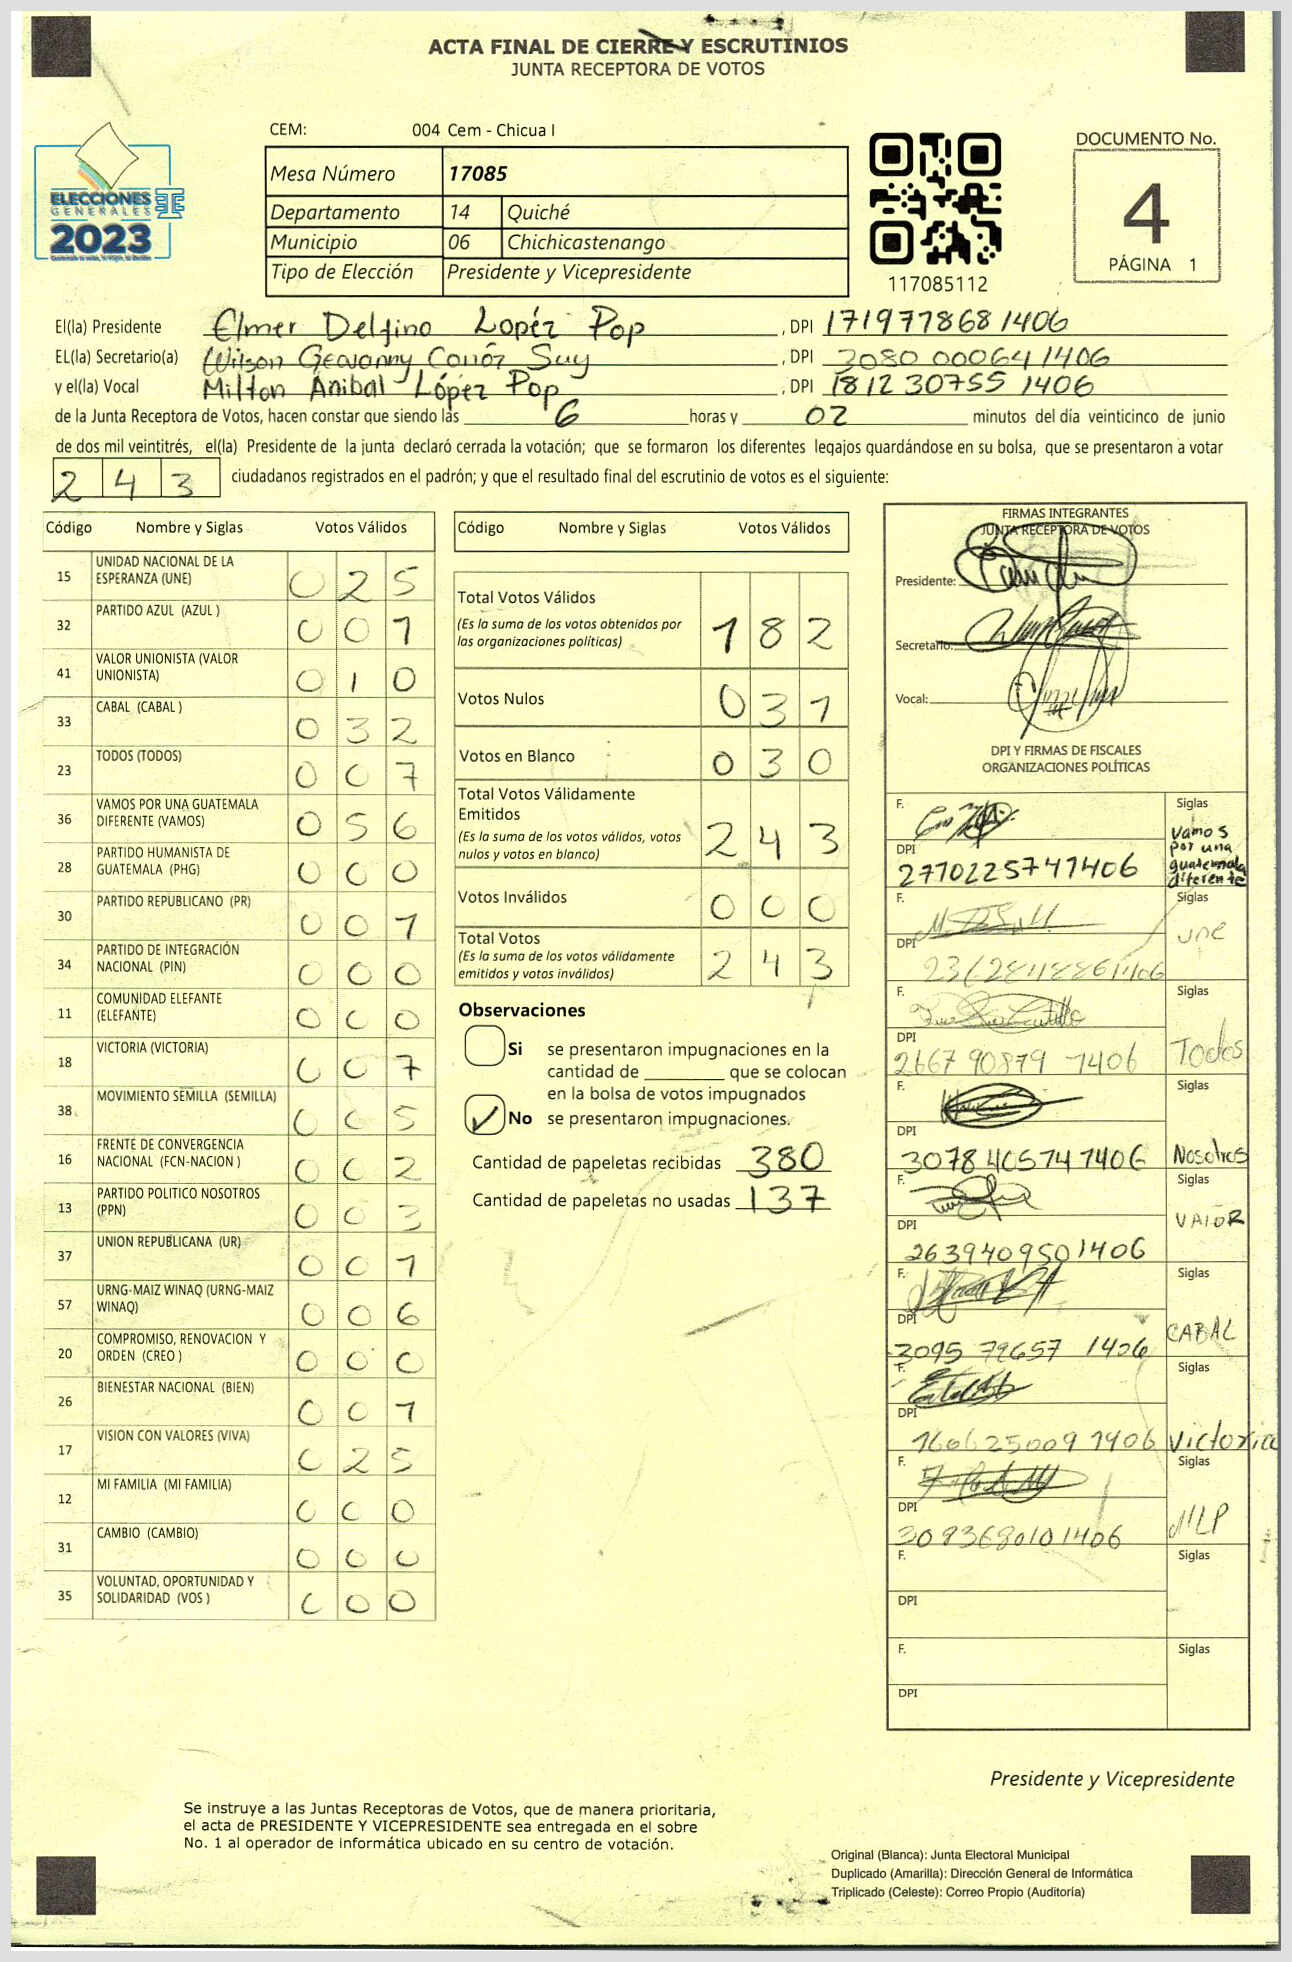 ACTA FINAL DE CIERRE Y ESCRUTINIOS
JUNTA RECEPTORA DE VOTOS
CEM: 004 Cem - Chicua I
ELECCIONES
GENERALES
2023
Mesa Número 17085
Departamento 14 Quiché
Municipio 06 Chichicastenango
Tipo de Elección Presidente y Vicepresidente
117085112
DOCUMENTO No.
4
PÁGINA 1
El(la) Presidente Elmer Delfino Lopéz Pop , DPI 1719778681406
EL(la) Secretario(a) Wilson Geovanny Suy , DPI 3080 00064 1406
y el(la) Vocal Milton Anibal López Pop , DPI 181230755 1406
de la Junta Receptora de Votos, hacen constar que siendo las 6 horas y 02 minutos del día veinticinco de junio
de dos mil veintitrés, el(la) Presidente de la junta declaró cerrada la votación; que se formaron los diferentes legajos guardándose en su bolsa, que se presentaron a votar
243 ciudadanos registrados en el padrón; y que el resultado final del escrutinio de votos es el siguiente:
Código Nombre y Siglas Votos Válidos
15 UNIDAD NACIONAL DE LA ESPERANZA (UNE) 025
32 PARTIDO AZUL (AZUL ) 001
41 VALOR UNIONISTA (VALOR UNIONISTA) 010
33 CABAL (CABAL ) 032
23 TODOS (TODOS) 007
36 VAMOS POR UNA GUATEMALA DIFERENTE (VAMOS) 056
28 PARTIDO HUMANISTA DE GUATEMALA (PHG) 000
30 PARTIDO REPUBLICANO (PR) 001
34 PARTIDO DE INTEGRACIÓN NACIONAL (PIN) 000
11 COMUNIDAD ELEFANTE (ELEFANTE) 000
18 VICTORIA (VICTORIA) 007
38 MOVIMIENTO SEMILLA (SEMILLA) 005
16 FRENTE DE CONVERGENCIA NACIONAL (FCN-NACION ) 002
13 PARTIDO POLITICO NOSOTROS (PPN) 003
37 UNION REPUBLICANA (UR) 001
57 URNG-MAIZ WINAQ (URNG-MAIZ WINAQ) 006
20 COMPROMISO, RENOVACION Y ORDEN (CREO ) 000
26 BIENESTAR NACIONAL (BIEN) 001
17 VISION CON VALORES (VIVA) 025
12 MI FAMILIA (MI FAMILIA) 000
31 CAMBIO (CAMBIO) 000
35 VOLUNTAD, OPORTUNIDAD Y SOLIDARIDAD (VOS ) 000
Código Nombre y Siglas Votos Válidos
Total Votos Válidos 182
(Es la suma de los votos obtenidos por
las organizaciones políticas)
Votos Nulos 031
Votos en Blanco 030
Total Votos Válidamente
Emitidos 243
(Es la suma de los votos válidos, votos
nulos y votos en blanco)
Votos Inválidos 000
Total Votos 243
(Es la suma de los votos válidamente
emitidos y votos inválidos)
Observaciones
Si se presentaron impugnaciones en la
cantidad de ________ que se colocan
en la bolsa de votos impugnados
No se presentaron impugnaciones.
Cantidad de papeletas recibidas 380
Cantidad de papeletas no usadas 137
FIRMAS INTEGRANTES
JUNTA RECEPTORA DE VOTOS
Presidente:
Secretario:
Vocal:
DPI Y FIRMAS DE FISCALES
ORGANIZACIONES POLÍTICAS
F. Siglas
Vamos por una guatemala diferente
DPI 2770225741406
F. Siglas
une
DPI
F. Siglas
Todos
DPI 2667 90879 1406
F. Siglas
Nosotros
DPI 3078 40574 1406
F. Siglas
VALOR
DPI 2639409501406
F. Siglas
CABAL
DPI 3095 79657 1406
F. Siglas
Victoria
DPI 1606250091406
F. Siglas
MLP
DPI 3093680101406
F. Siglas
DPI
F. Siglas
DPI
Presidente y Vicepresidente
Se instruye a las Juntas Receptoras de Votos, que de manera prioritaria,
el acta de PRESIDENTE Y VICEPRESIDENTE sea entregada en el sobre
No. 1 al operador de informática ubicado en su centro de votación.
Original (Blanca): Junta Electoral Municipal
Duplicado (Amarilla): Dirección General de Informática
Triplicado (Celeste): Correo Propio (Auditoría)